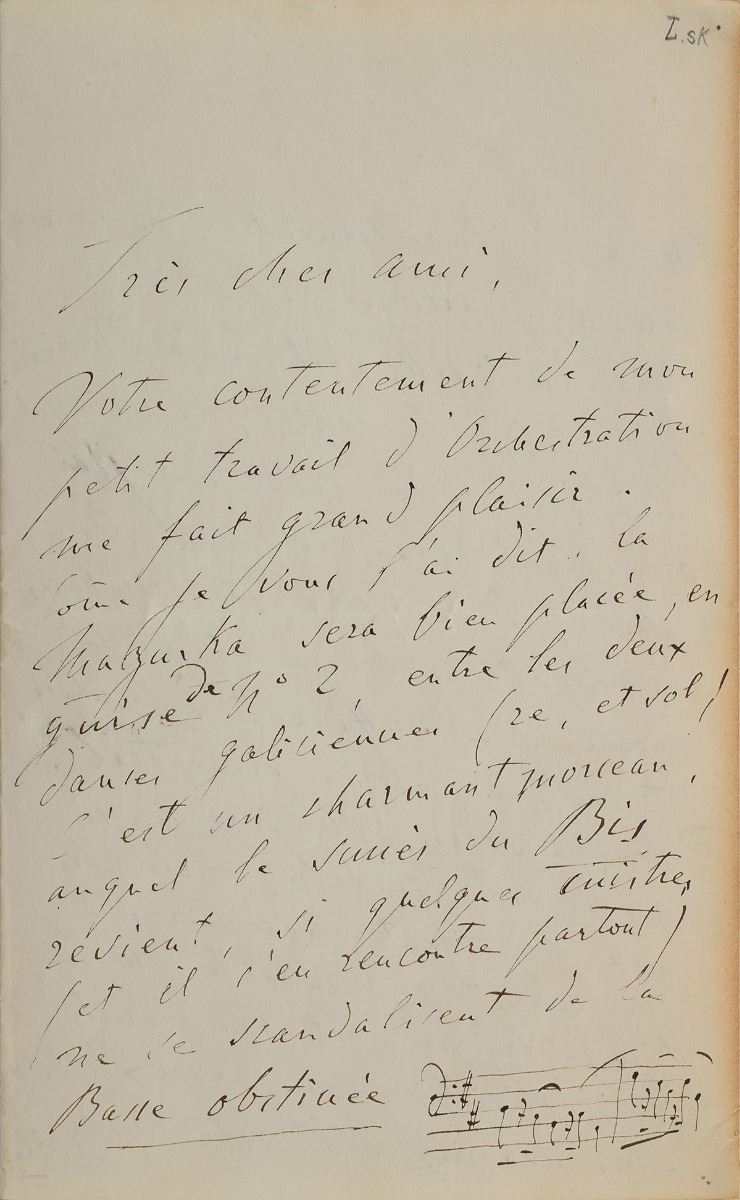 I.sk.
Très cher ami,
Votre contentement de mon
petit travail d'Orchestration
me fait grand plaisir.
Come je vous l'ai dit, la
Mazurka sera bien placée, en
guise de No 2, entre les deux
danses galiciennes (re, et sol)
C'est un charmant morceau,
auquel le succès du Bis
revient, si quelques cuistres
(et il s'en rencontre partout)
ne se scandalisent de la
Basse obstinée